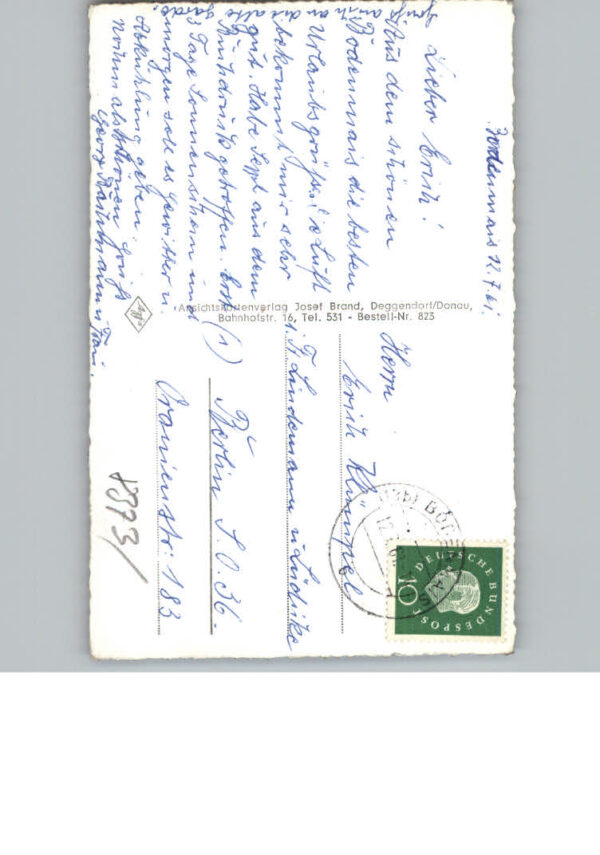 Bodenmais 12.7.61.
Lieber Erich!
Aus dem schönen
Bodenmais die besten
Urlaubsgrüße! Luft
bekommt mir sehr
gut. Habe Sepp aus dem
getroffen. Erst
3 Tage Sonnenschein und
morgen soll es Gewittern u.
Abkühlung geben.
nochmals schönen Gruß
Georg
Gruß
auch an
die alte
Garde.
Ansichtskartenverlag Josef Brand, Deggendorf/Donau,
Bahnhofstr. 16, Tel. 531 - Bestell-Nr. 823
Agfa
Herrn
Erich Klimpel
Lindemann u. Lüdike
(1) Berlin S.O. 36.
Oranienstr. 183
DEUTSCHE BUNDESPOST
10